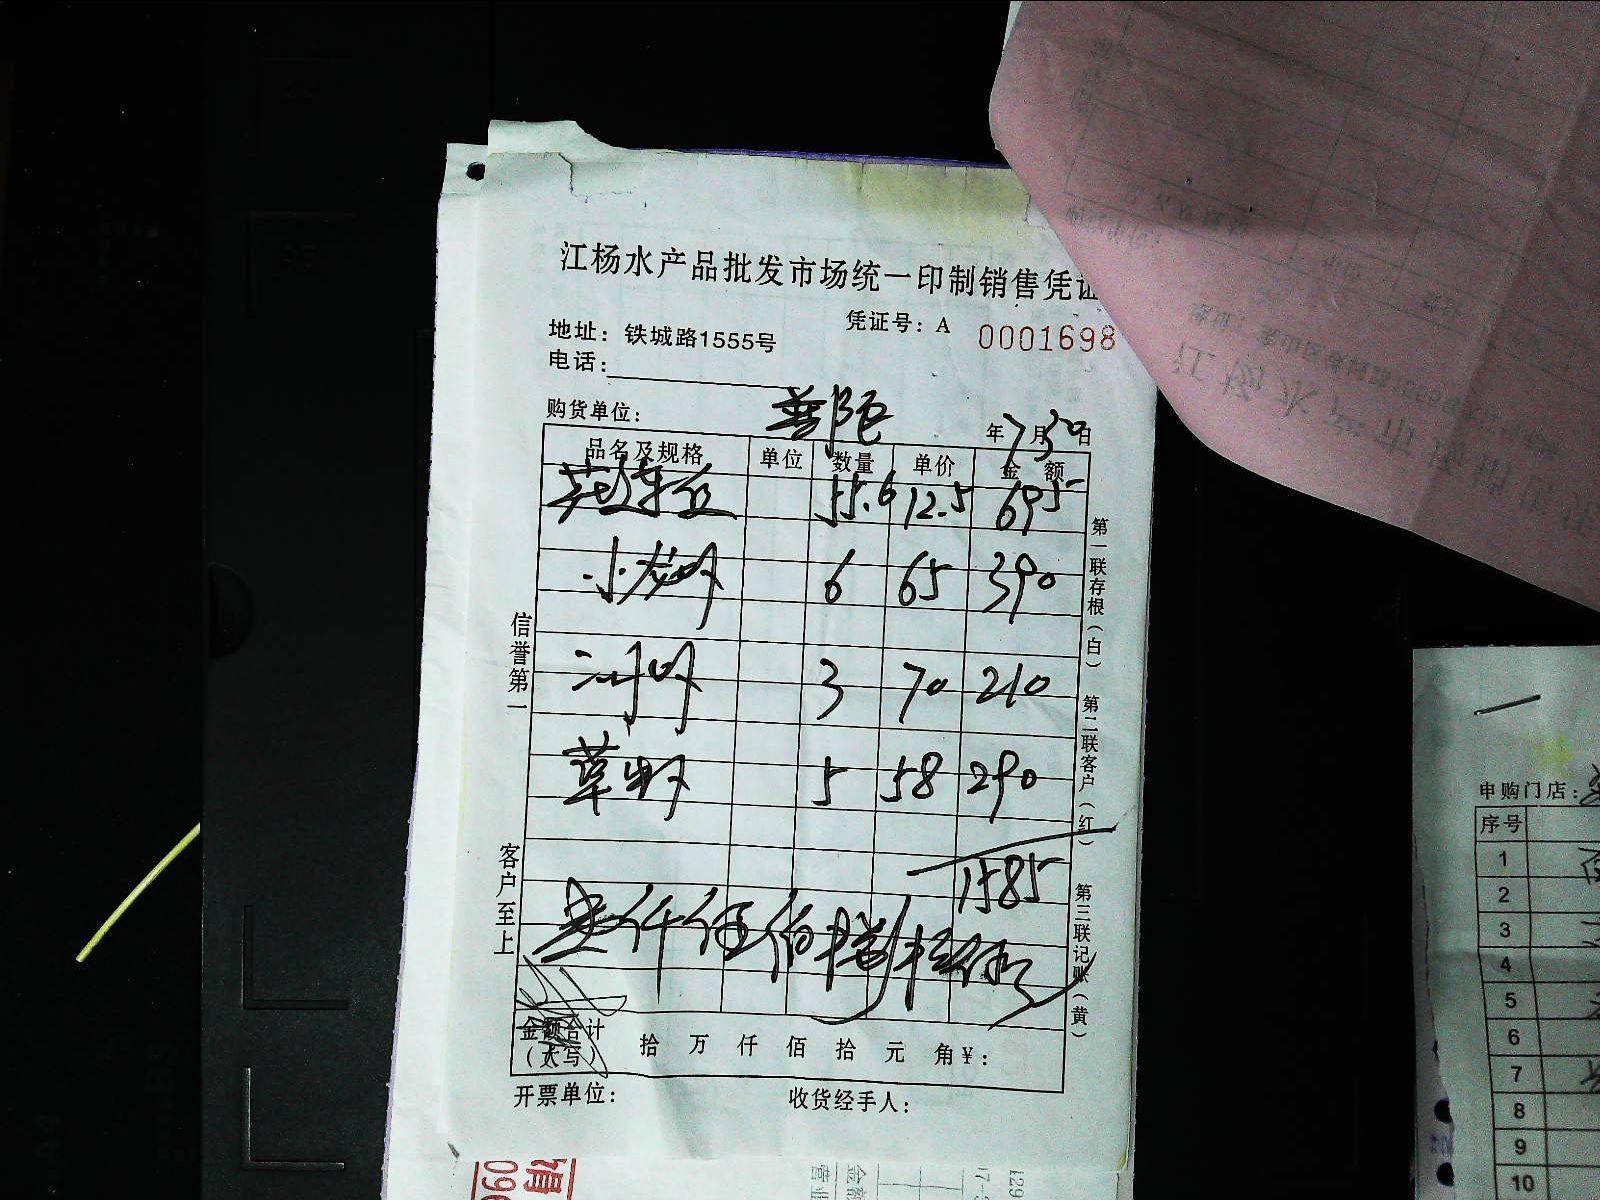 江杨水产品批发市场统一印制销售凭证
凭证号：A 0001698
地址：铁城路1555号
电话：
购货单位：普陀
年7月30日
品名及规格 单位 数量 单价 金额
55.6 12.5 695
小龙虾 6 65 390
河虾 3 70 210
草虾 5 58 290
1585
壹仟伍佰捌拾伍元
金额合计（大写） 拾 万 仟 佰 拾 元 角 ¥：
开票单位： 收货经手人：
信誉第一
客户至上
第一联存根（白）
第二联客户（红）
第三联记账（黄）
申购门店：
序号
1
2
3
4
5
6
7
8
9
10